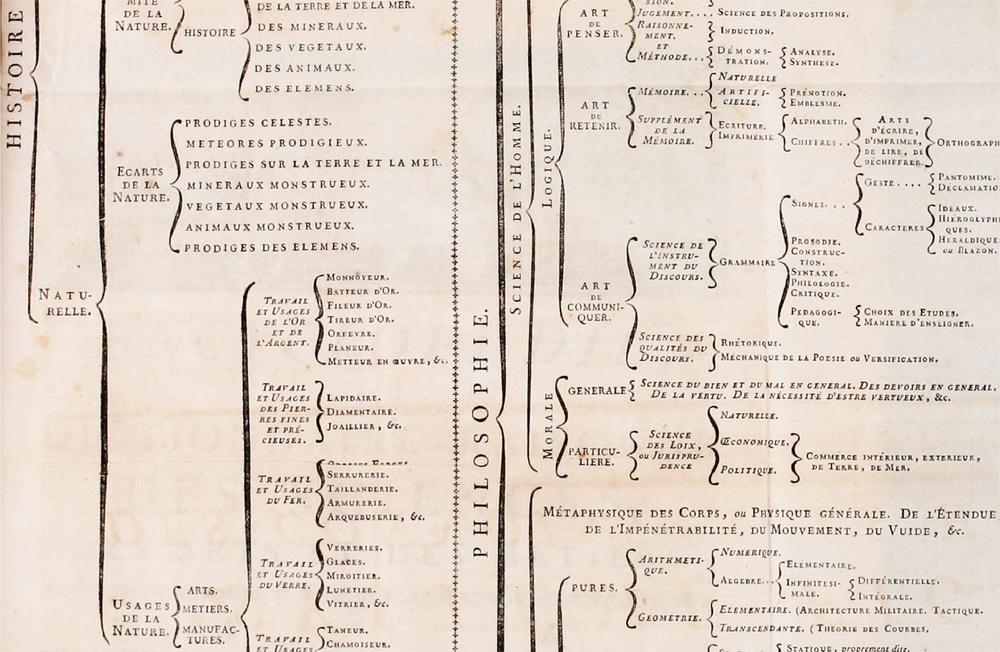 HISTOIRE
MITÉ
DE LA
NATURE.
HISTOIRE
DE LA TERRE ET DE LA MER.
DES MINERAUX.
DES VEGETAUX.
DES ANIMAUX.
DES ELEMENS.
ECARTS
DE LA
NATURE.
PRODIGES CELESTES.
METEORES PRODIGIEUX.
PRODIGES SUR LA TERRE ET LA MER.
MINERAUX MONSTRUEUX.
VEGETAUX MONSTRUEUX.
ANIMAUX MONSTRUEUX.
PRODIGES DES ELEMENS.
NATU-
RELLE.
TRAVAIL
ET USAGES
DE L'OR
ET DE
L'ARGENT.
MONNOYEUR.
BATTEUR D'OR.
FILEUR D'OR.
TIREUR D'OR.
ORFEVRE.
PLANEUR.
METTEUR EN ŒUVRE, &c.
TRAVAIL
ET USAGES
DES PIER-
RES FINES
ET PRÉ-
CIEUSES.
LAPIDAIRE.
DIAMENTAIRE.
JOAILLIER, &c.
TRAVAIL
ET USAGES
DU FER.
SERRURERIE.
TAILLANDERIE.
ARMURERIE.
ARQUEBUSERIE, &c.
TRAVAIL
ET USAGES
DU VERRE.
VERRERIES.
GLACES.
MIROITIER.
LUNETIER.
VITRIER, &c.
USAGES
DE LA
NATURE.
ARTS.
METIERS.
MANUFAC-
TURES.
TRAVAIL
TANEUR.
CHAMOISEUR.
PHILOSOPHIE.
SCIENCE DE L'HOMME.
LOGIQUE.
ART
DE
PENSER.
SION.
JUGEMENT.... SCIENCE DES PROPOSITIONS.
RAISONNE-
MENT.
INDUCTION.
ET
MÉTHODE...
DÉMONS-
TRATION.
ANALYSE.
SYNTHESE.
ART
DE
RETENIR.
MÉMOIRE...
NATURELLE
ARTIFI-
CIELLE.
PRÉNOTION.
EMBLESME.
SUPPLÉMENT
DE LA
MÉMOIRE.
ECRITURE.
IMPRIMERIE
ALPHABETH.
CHIFFRES..
ARTS
D'ÉCRIRE,
D'IMPRIMER,
DE LIRE, DE
DÉCHIFFRER.
ORTHOGRAPH
ART
DE
COMMUNI-
QUER.
SCIENCE DE
L'INSTRU-
MENT DU
DISCOURS.
GRAMMAIRE
SIGNES...
GESTE....
PANTOMIME.
DÉCLAMATIO
CARACTERES
IDEAUX.
HIEROGLYPH
QUES.
HERALDIQUE
ou BLAZON.
PROSODIE.
CONSTRUC-
TION.
SYNTAXE.
PHILOLOGIE.
CRITIQUE.
PEDAGOGI-
QUE.
CHOIX DES ETUDES.
MANIERE D'ENSEIGNER.
SCIENCE DES
QUALITÉS DU
DISCOURS.
RHÉTORIQUE.
MÉCHANIQUE DE LA POESIE ou VERSIFICATION.
MORALE
GENERALE
SCIENCE DU BIEN ET DU MAL EN GENERAL. DES DEVOIRS EN GENERAL.
DE LA VERTU. DE LA NÉCESSITÉ D'ESTRE VERTUEUX, &c.
PARTICU-
LIERE.
SCIENCE
DES LOIX,
OU JURISPRU-
DENCE
NATURELLE.
ŒCONOMIQUE.
POLITIQUE.
COMMERCE INTÉRIEUR, EXTERIEUR,
DE TERRE, DE MER.
MÉTAPHYSIQUE DES CORPS, ou PHYSIQUE GÉNÉRALE. DE L'ÉTENDUE
DE L'IMPÉNÉTRABILITÉ, DU MOUVEMENT, DU VUIDE, &c.
PURES.
ARITHMETI-
QUE.
NUMERIQUE.
ALGEBRE...
ELEMENTAIRE.
INFINITESI-
MALE.
DIFFÉRENTIELLE.
INTÉGRALE.
GEOMETRIE.
ELEMENTAIRE. (ARCHITECTURE MILITAIRE. TACTIQUE.
TRANSCENDANTE. (THEORIE DES COURBES.
STATIQUE, proprement dite.